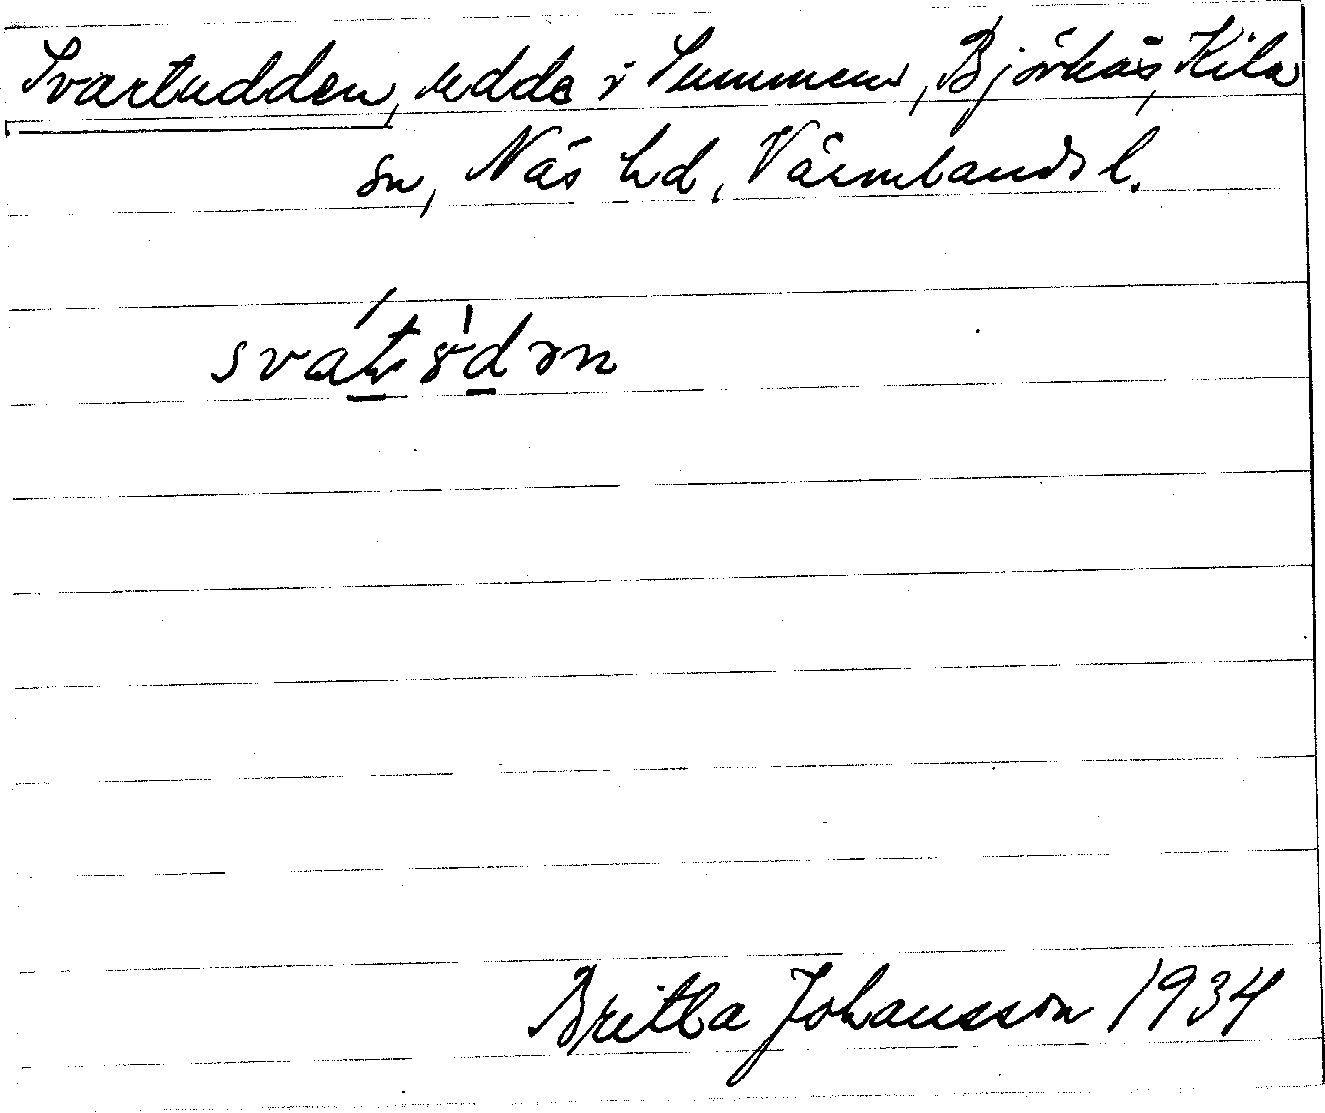 Svartudden, udde i Summen, Björkås, Kila
sn, Näs hd, Värmlands l.
Britta Johansson 1934